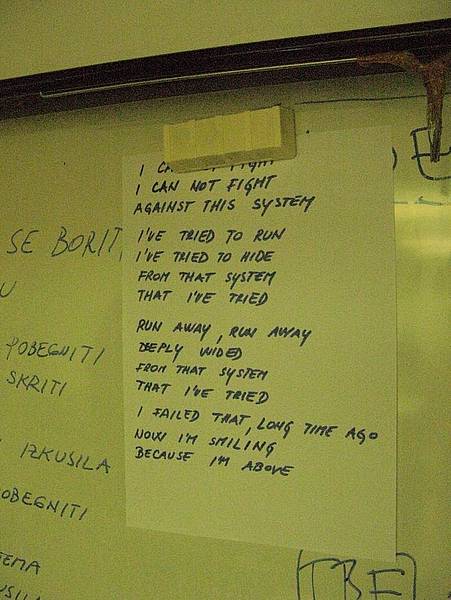 I CAN NOT FIGHT
I CAN NOT FIGHT
AGAINST THIS SYSTEM
I'VE TRIED TO RUN
I'VE TRIED TO HIDE
FROM THAT SYSTEM
THAT I'VE TRIED
RUN AWAY, RUN AWAY
DEEPLY WIDED
FROM THAT SYSTEM
THAT I'VE TRIED
I FAILED THAT, LONG TIME AGO
NOW I'M SMILING
BECAUSE I'M ABOVE
SE BORIT
U
POBEGNITI
SKRITI
IZKUSILA
POBEGNITI